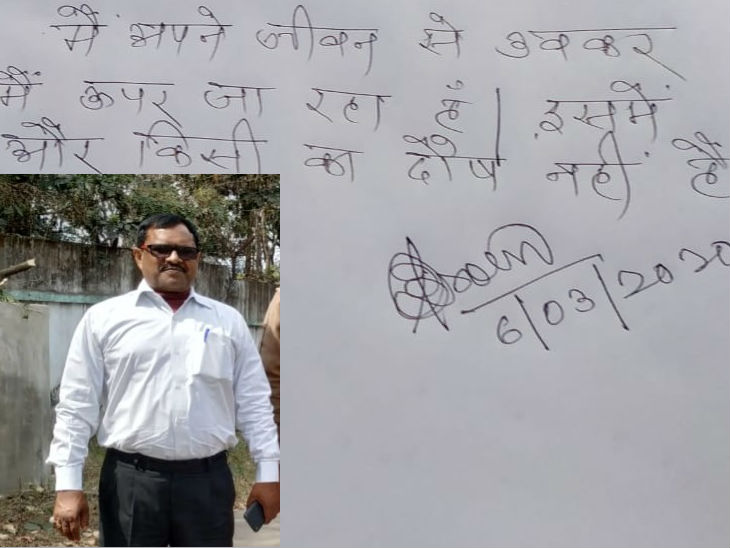 मैं अपने जीवन से उबकर
मैं ऊपर जा रहा हूँ। इसमें
और किसी का दोष नहीं है
6/03/2020